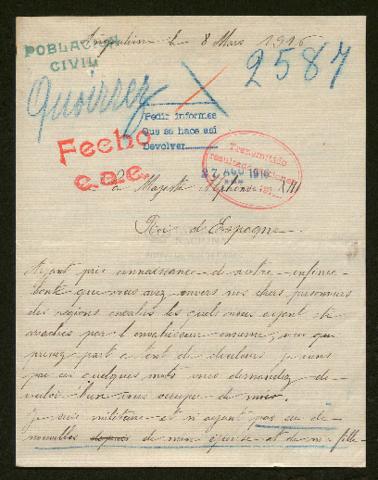 le 8 Mars 1916
POBLACION
CIVIL
2587
Pedir informes
Que se hace así
Devolver
Fecho
c.a.e.
Transmitido
27 AGO 1916
a Majesté Alphonse XIII
Roi d'Espagne
Ayant pris connaissance de votre infinie
bonté que vous avez envers nos chers prisonniers
des régions envahis les quels nous ayant été
arrachés par l'envahisseur
prenez part a tant de douleurs je viens
par ces quelques mots vous demandez de
vouloir vous occupez de
je suis militaire et n'ayant pas eu de
nouvelles depuis de mon épouse et de ma fille